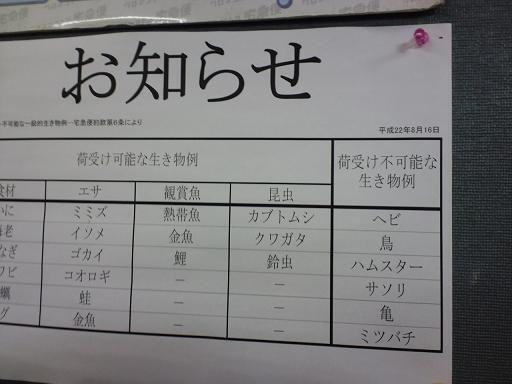 お知らせ
不可能な一般的生き物例…宅急便約款第6条により
平成22年8月16日
荷受け可能な生き物例
荷受け不可能な
生き物例
食材 エサ 観賞魚 昆虫
かに ミミズ 熱帯魚 カブトムシ ヘビ
海老 イソメ 金魚 クワガタ 鳥
なぎ ゴカイ 鯉 鈴虫 ハムスター
ワビ コオロギ － － サソリ
蠣 蛙 － － 亀
グ 金魚 － － ミツバチ